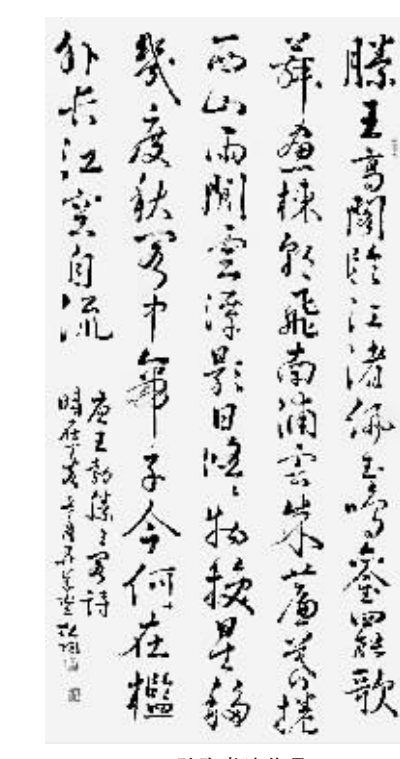 滕王高閣臨江渚佩玉鳴鑾罷歌
舞畫棟朝飛南浦雲朱簾暮捲
西山雨閒雲潭影日悠〻物換星移
幾度秋閣中帝子今何在檻
外長江空自流
唐王勃滕王閣詩
時在丁亥